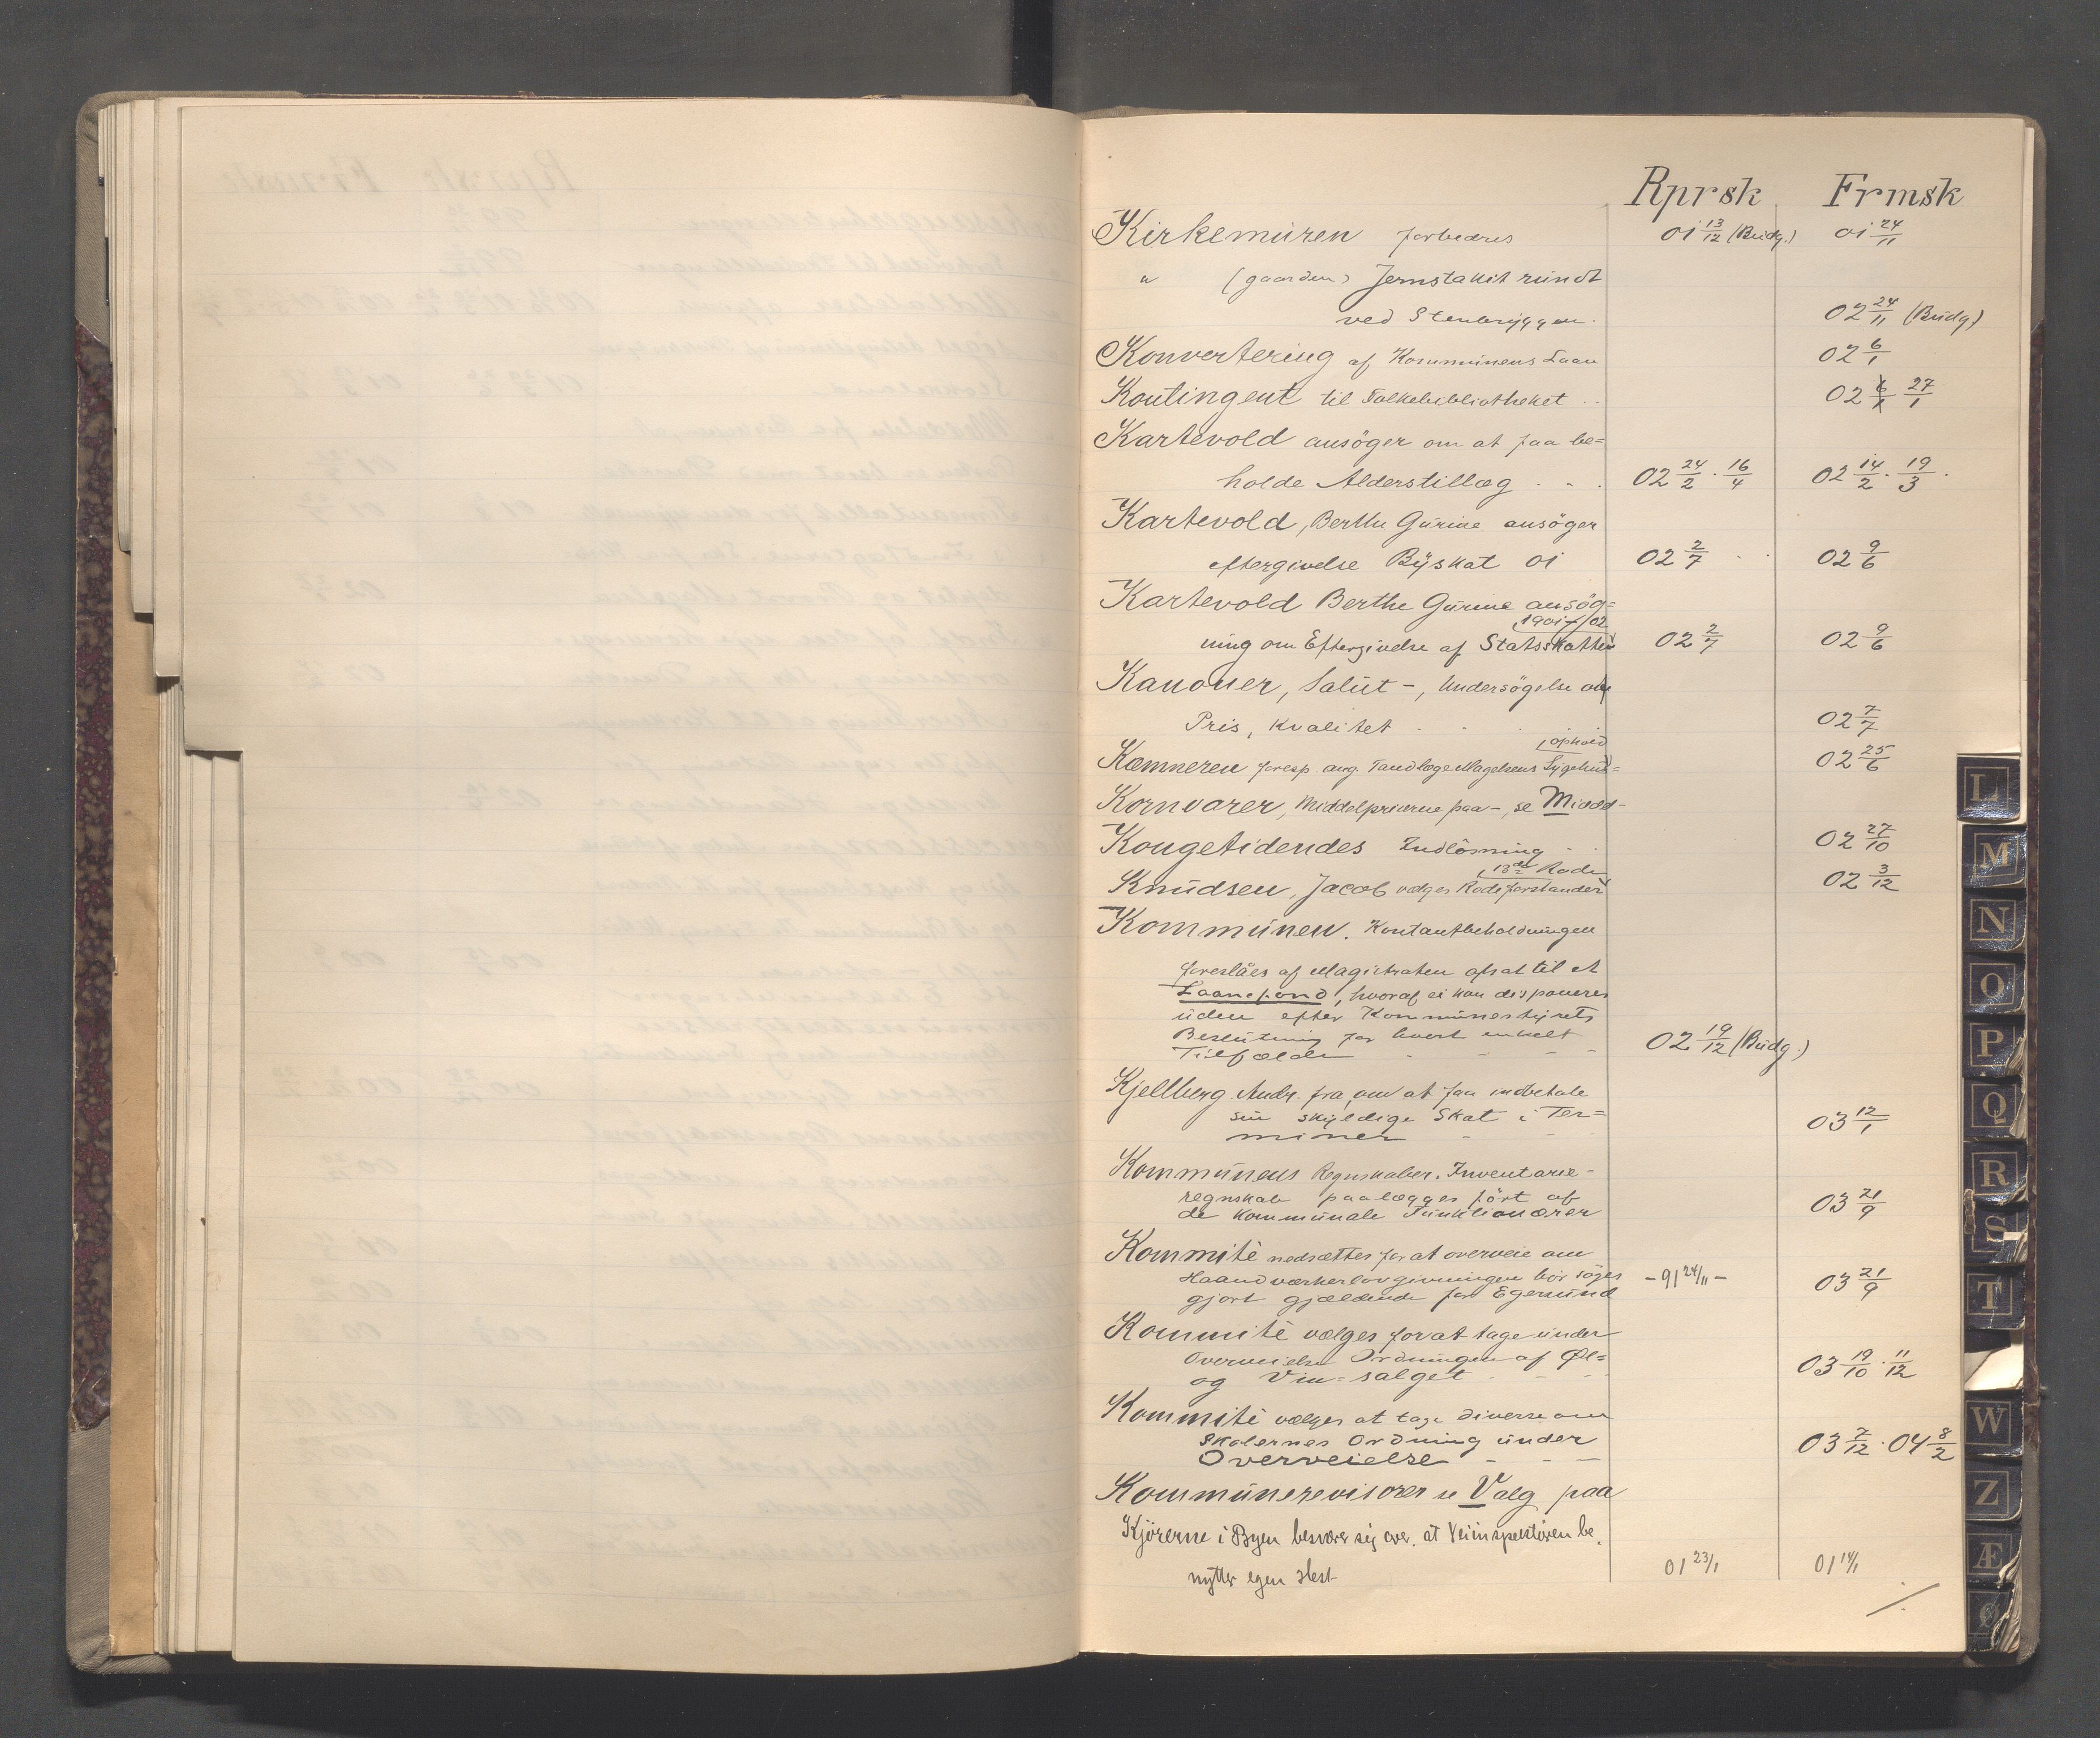 Rprsk Frmsk
Kirkemüren forbedres 01 13/12 (Büdg.) 01 24/11
" (gaarden) Jernstakit ründt
ved Stenbryggen. 02 24/11 (Büdg)
Konvertering af Kommünens Laan 02 6/1
Kontingent til Folkebibliotheket 02 6/1 27/1
Kartevold ansöger om at faa be=
holde Alderstillæg 02 24/2 . 16/4 02 14/2 . 19/3 .
Kartevold, Berthe Gürine ansöger
eftergivelse Bÿskat 01 02 2/7 02 9/6
Kartevold Berthe Gürine ansög=
1901-/02
ning om Eftergivelse af Statsskatten 02 2/7 02 9/6
Kanoner, Salüt-, Undersögelse om
Pris, Kvalitet 02 7/7
ophold
Kæmneren foresp. ang. Tandlæge Magelsens Sygehus= 02 25/6
Kornvarer, Middelpriserne paa-, se Midd-
Kongetidendes Indlösning 02 27/10
13de Rode
Knüdsen, Jacob vælges Rodeforstander 02 3/12
Kommünen. Kontantbeholdningen
foreslåes af Magistraten afsat til et
Laanefond, hvoraf ei kan disponeres
üden efter Kommünestyrets
Beslütning for hvert enkelt
Tilfælde 02 19/12 (Büdg.)
Kjellberg Andr. fra, om at faa indbetale
sin skÿldige Skat i Ter=
miner 03 12/1
Kommünens Regnskaber. Inventarie-
regnskab paalægges fört af
de kommünale Fünktionærer 03 21/9
Kommité nedsættes for at overveie om
Haandværkerlovgivningen bör söges
gjort gjældende for Egersünd -91 24/11- 03 21/9
Kommité vælges for at tage ünder
Overveielse Ordningen af Øl=
og Vin=salget 03 19/10 . 11/12
Kommité vælges at tage diverse om
Skolernes Ordning ünder
Overveielse 03 7/12 . 04 8/2
Kommünerevisorer se Valg paa
Kjörerne i Byen besværer sig over, at Veiinspektören be.
nytter egen Hest 01 23/1 01 14/1